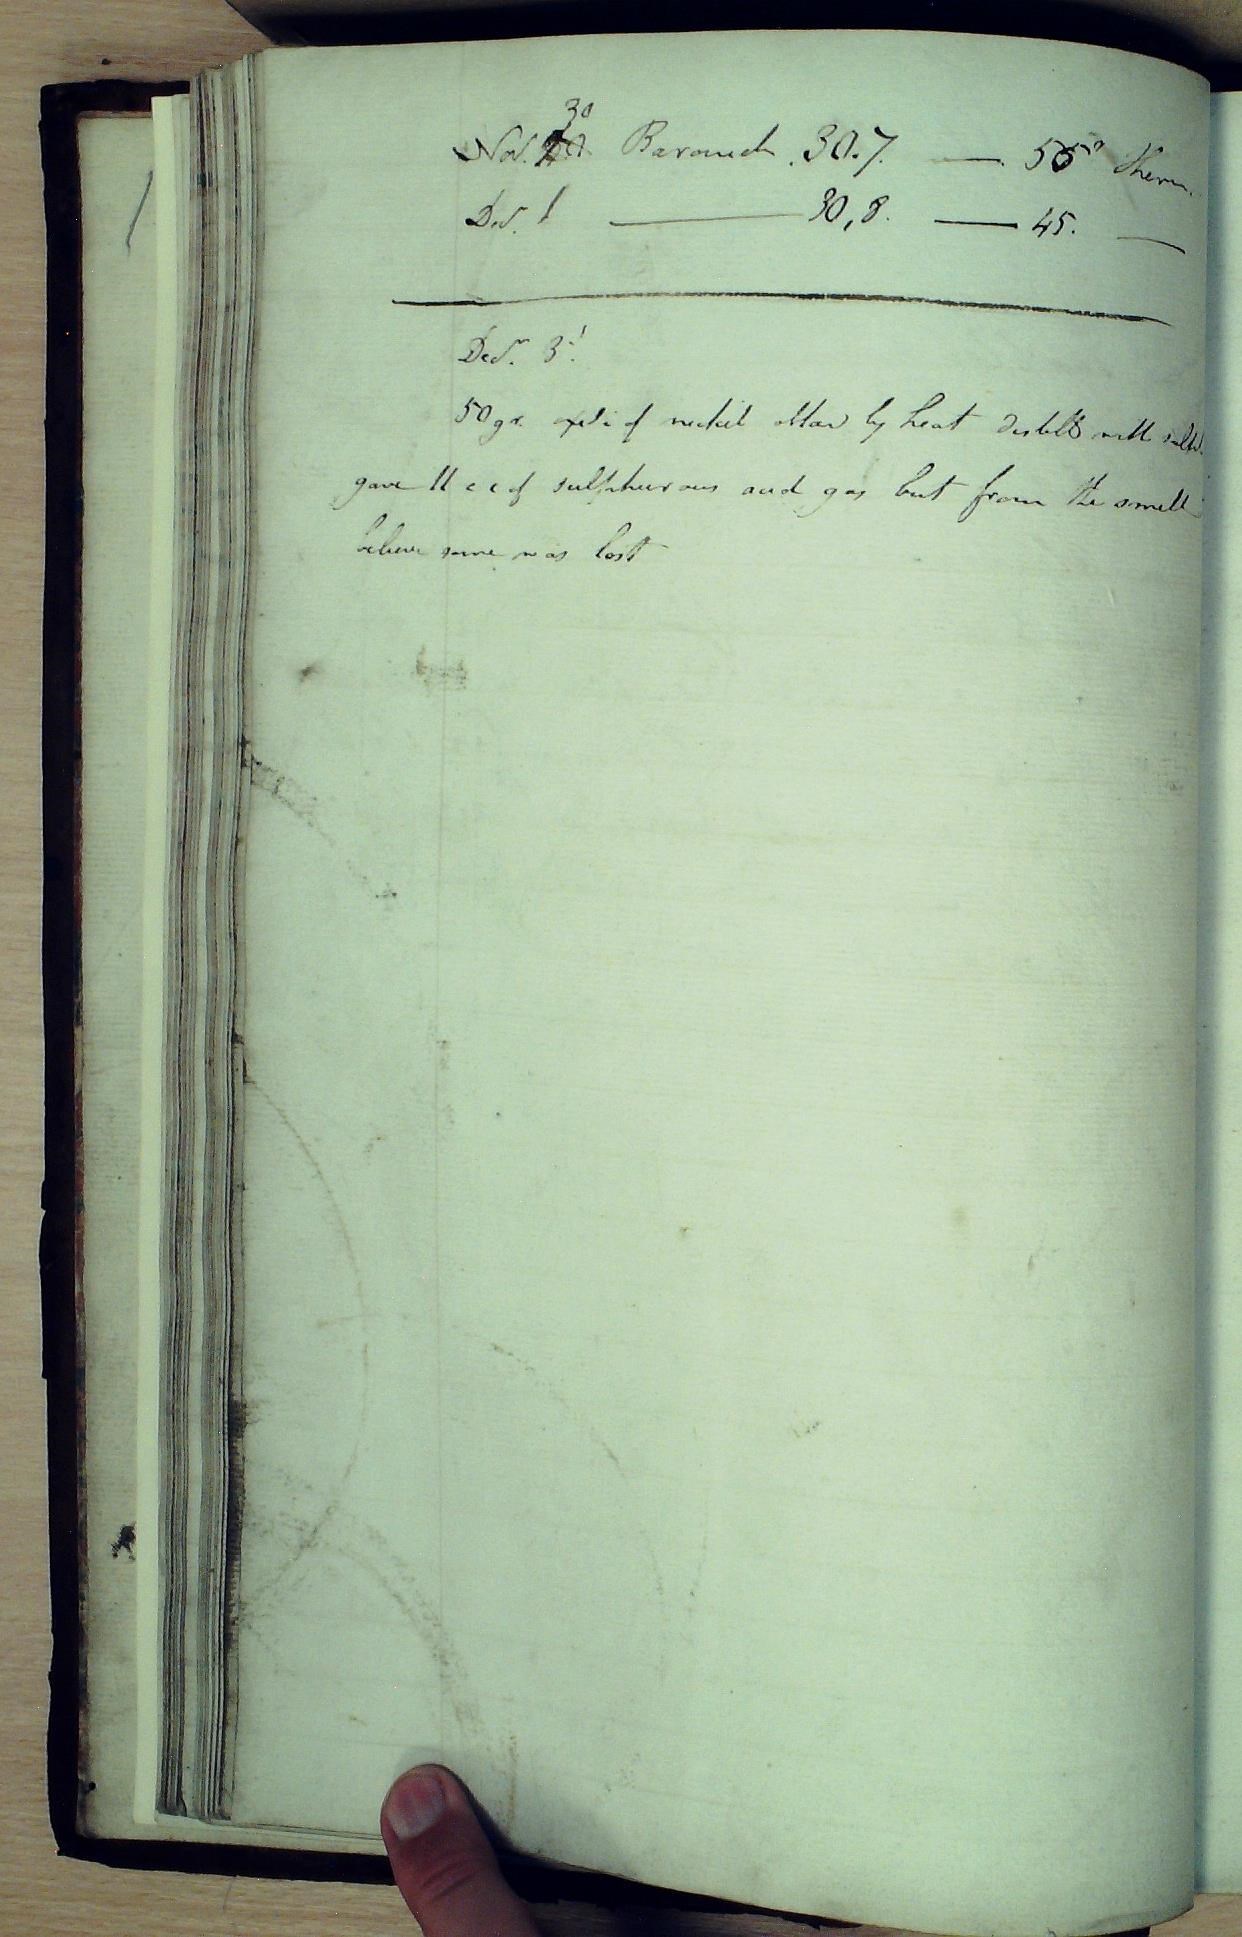 30
Nov. Baromet. 30.7. — 55° Therm.
Decr. 1 — 30,8. — 45. —
Decr. 3d.
50 gr. oxide of nickel obtd by heat distilld with sulphr.
gave 11 c i of sulphurous acid gas but from the smell
believe some was lost